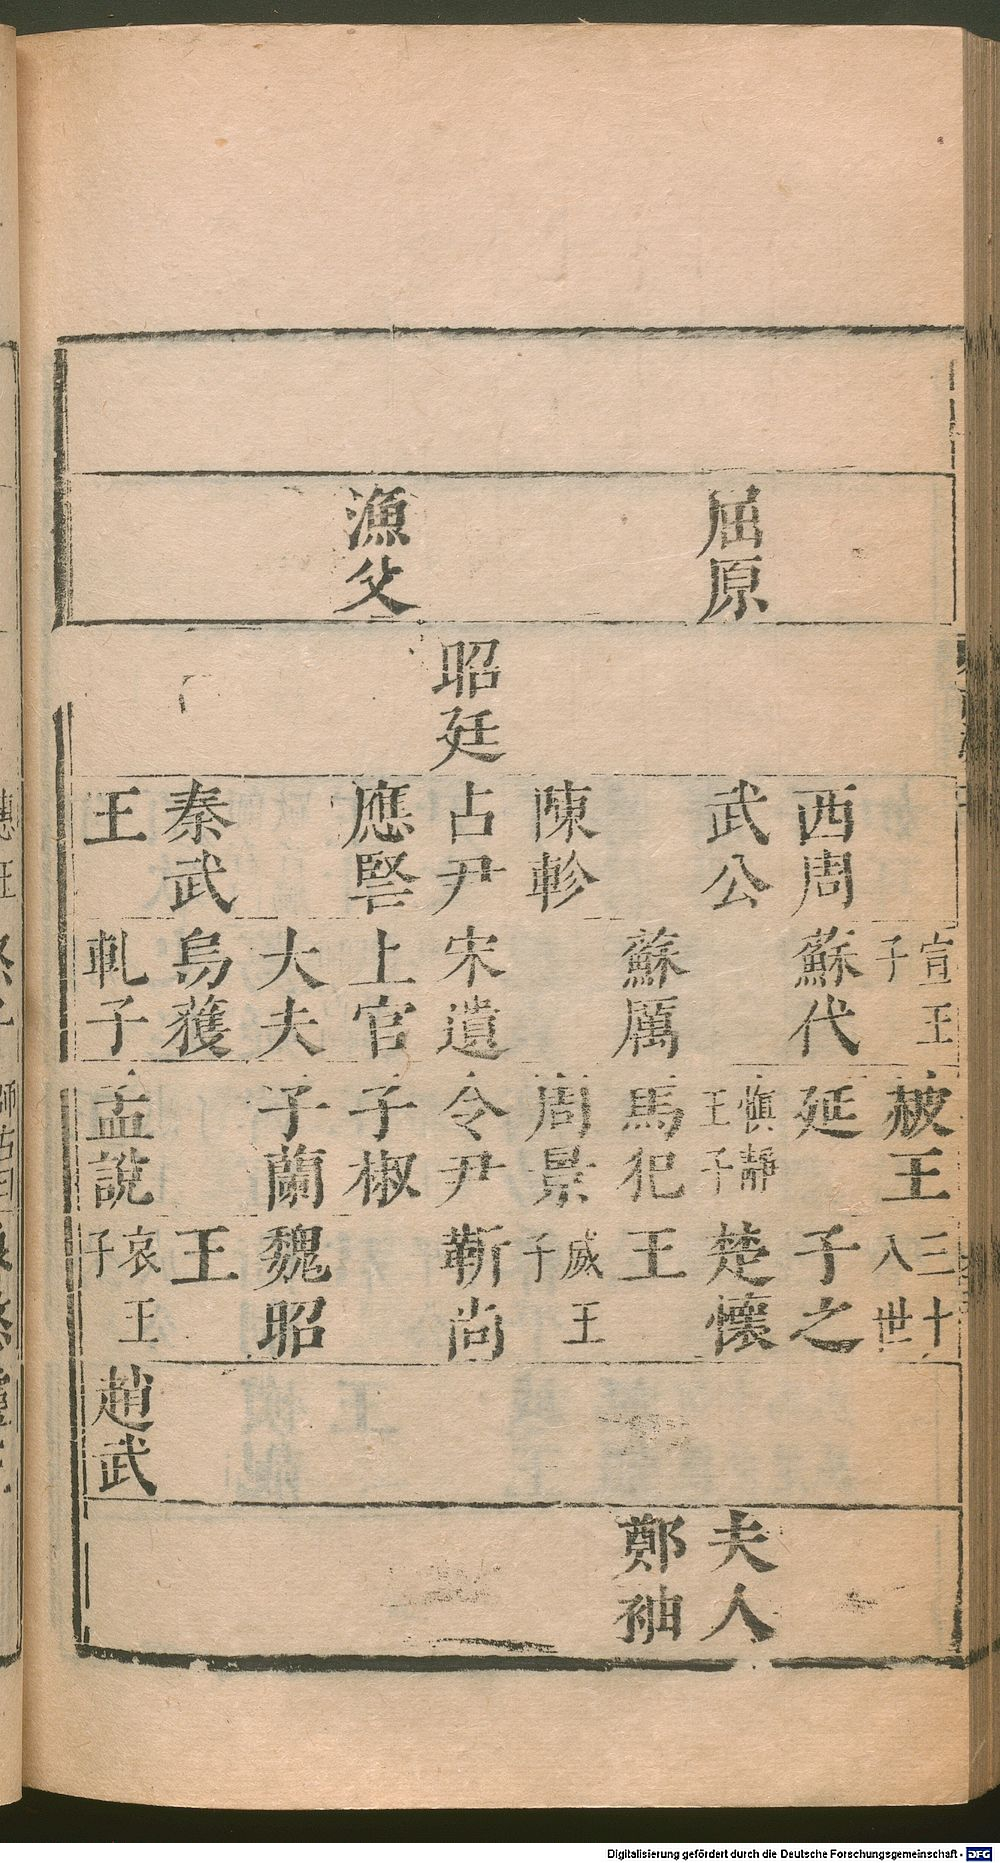 宣王子 赧王 三十八世
西周 蘇代 延 子之
屈原 武公 愼靜王子 楚懷 夫人
蘇厲 馬犯 王 鄭袖
陳軫 周景 威王子
昭廷 占尹 宋遺 令尹 靳尚
漁父 應豎 上官 子椒
大夫 子蘭 魏昭
秦武 烏獲 王
王 軋子 孟說 哀王子 趙武
Digitalisierung gefördert durch die Deutsche Forschungsgemeinschaft - DFG